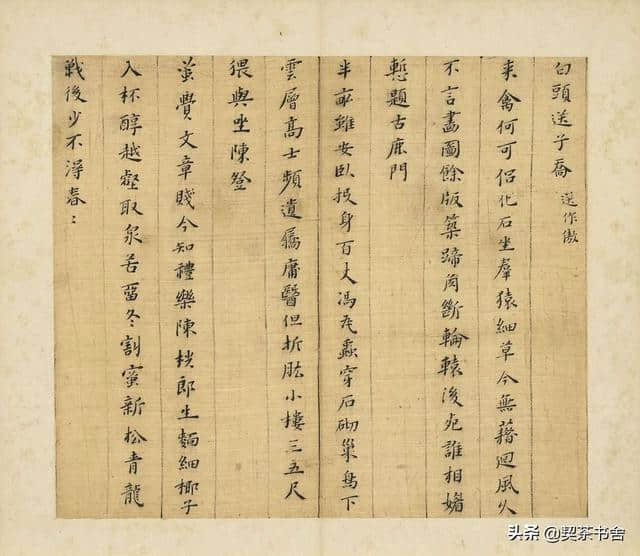 白頭送子喬 送作傲
來禽何可侶化石坐羣猿細草今無藉迴風久
不言畫圖餘版築蹄角斷輪轅後死誰相媚
慙題古鹿門
半畝雖安臥投身百丈馮死蟲穿石砌巢鳥下
雲層高士頻遺屩庸醫但折肱小樓三五尺
猥與坐陳登
蚩費文章賤今知禮樂陳桄郎生麵細椰子
入杯醇越壑取泉苦留冬割蜜新松青龍
戰後少不得春〻
头条 @契茶书舍